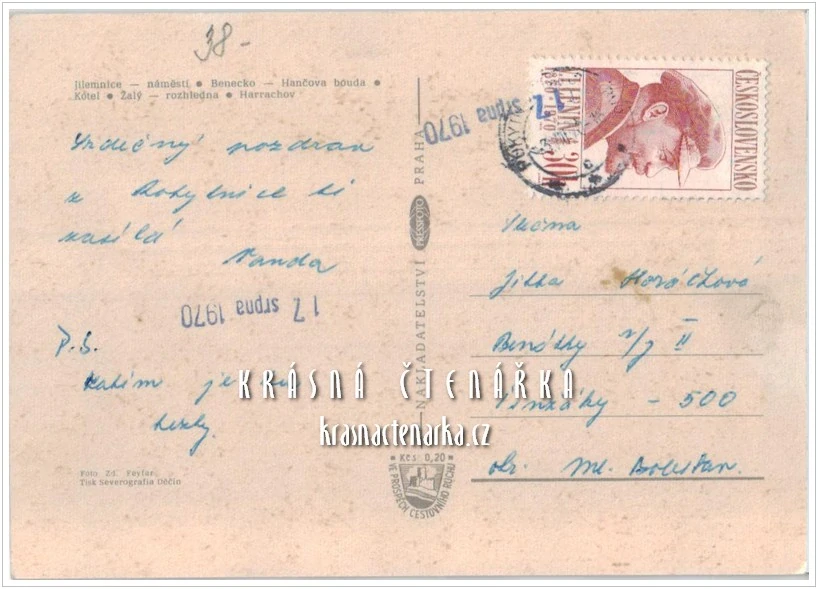 38-
Jilemnice — náměstí ● Benecko — Hančova bouda ●
Kotel ● Žalý — rozhledna ● Harrachov
Srdečný pozdrav
z Rokytnice ti
zasílá
Vanda
17. srpna 1970
P.S.
Zatím je tu
hezky.
Foto Zd. Feyfar
Tisk Severografia Děčín
NAKLADATELSTVÍ PRESSFOTO PRAHA
Kčs 0,20
VE PROSPĚCH CESTOVNÍHO RUCHU
17. srpna 1970
ČESKOSLOVENSKO
30h
Vážená
Jitka Horáčková
Benátky n/J II
- 500
okr. Ml. Boleslav.
KRÁSNÁ ČTENÁŘKA
krasnactenarka.cz